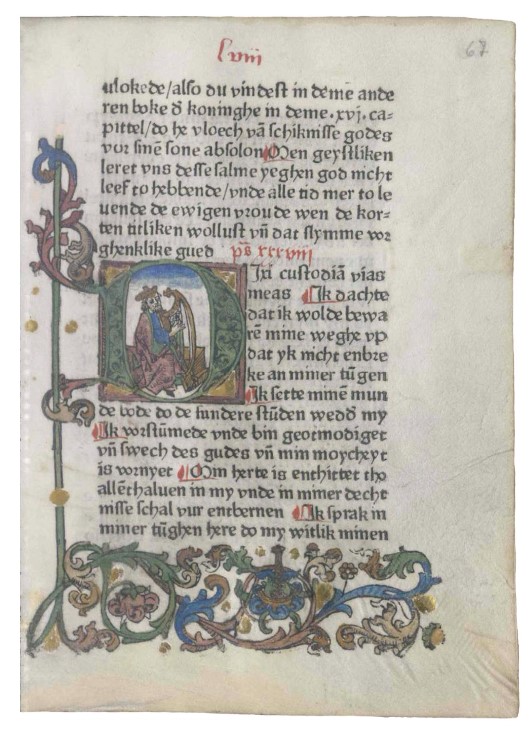 lviij
67
vlokede/also du vindest in deme ande
ren boke đ koninghe in deme .xvj. ca-
pittel/do he vloech vā schiknisse godes
vor sinē sone absolon Men geystliken
leret vns desse salme yeghen god nicht
leef to hebbende/vnde alle tid mer to le
uende de ewigen vroude wen de kor-
ten titliken wollust vn̄ dat slymme vor
ghenklike gued ps xxxviij
DIxi custodiā vias
meas Ik dachte
dat ik wolde bewa
rē mine weghe vp
dat yk nicht enbre
ke an miner tūgen
Ik sette minē mun
de bode do de sundere stūden wedđ my
Ik vorstūmede vnde bin geotmodiget
vn̄ swech des gudes vn̄ min moycheyt
is vornyet Min herte is enthittet tho
allēthaluen in my vnde in miner decht
nisse schal vur entbernen Ik sprak in
miner tūghen here do my witlik minen